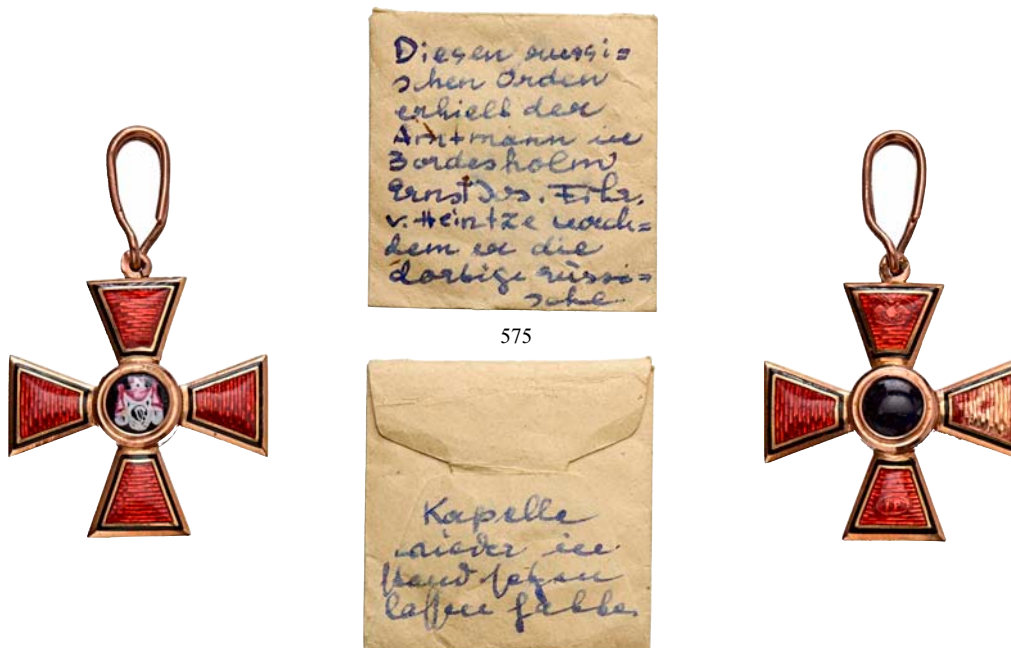 Diesen russi=
schen Orden
erhielt der
Amtmann in
Bordesholm
Ernst Jos. Frhr.
v. Heintze nach=
dem er die
dortige russi=
sche
575
Kapelle
wieder in
stand setzen
lassen hatte.